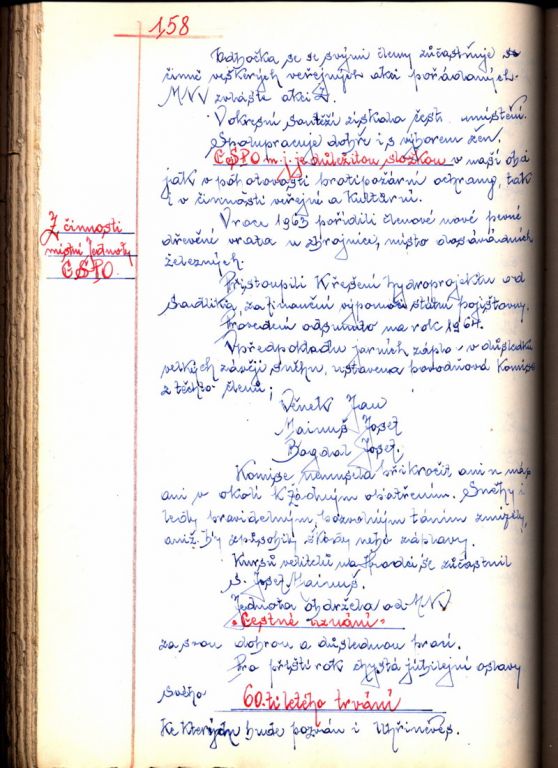 158
Odbočka se se svými členy zúčastňuje
činně veškerých veřejných akcí pořádaných
MNV zvláště akcí Z.
V okresní soutěži získala čestné umístění.
Spolupracuje dobře i s výborem žen.
ČSPO m. j. je důležitou složkou v naší obci
jak v pohotovosti protipožární ochrany, tak
i v činnosti veřejné a kulturní.
Z činnosti
místní Jednoty
ČSPO
V roce 1963 pořídili členové nové pevné
dřevěné vrata u zbrojnice, místo dosavadních
železných.
Přistoupili k řešení hydroprojektu od
Sadílka, za finanční výpomoci státní pojišťovny.
Provedení odsunuto na rok 1964.
V předpokladu jarních záplav v důsledku
velkých závějí sněhu, ustavena povodňová komise
z těchto členů;
Věnek Jan
Mainuš Josef
Bogdal Josef.
Komise nemusela přikročit ani u nás
ani v okolí k žádným opatřením. Sněhy i
ledy pravidelným, pozvolným táním zmizely,
aniž by způsobily škody nebo záplavy.
Kursů velitelů na Hradci se zúčastnil
s. Josef Mainuš.
Jednota obdržela od MNV
"Čestné uznání"
za svou dobrou a důslednou práci.
Pro příští rok chystá jubilejní oslavy
svého 60.ti letého trvání
ke kterým bude pozván i Uhříněves.